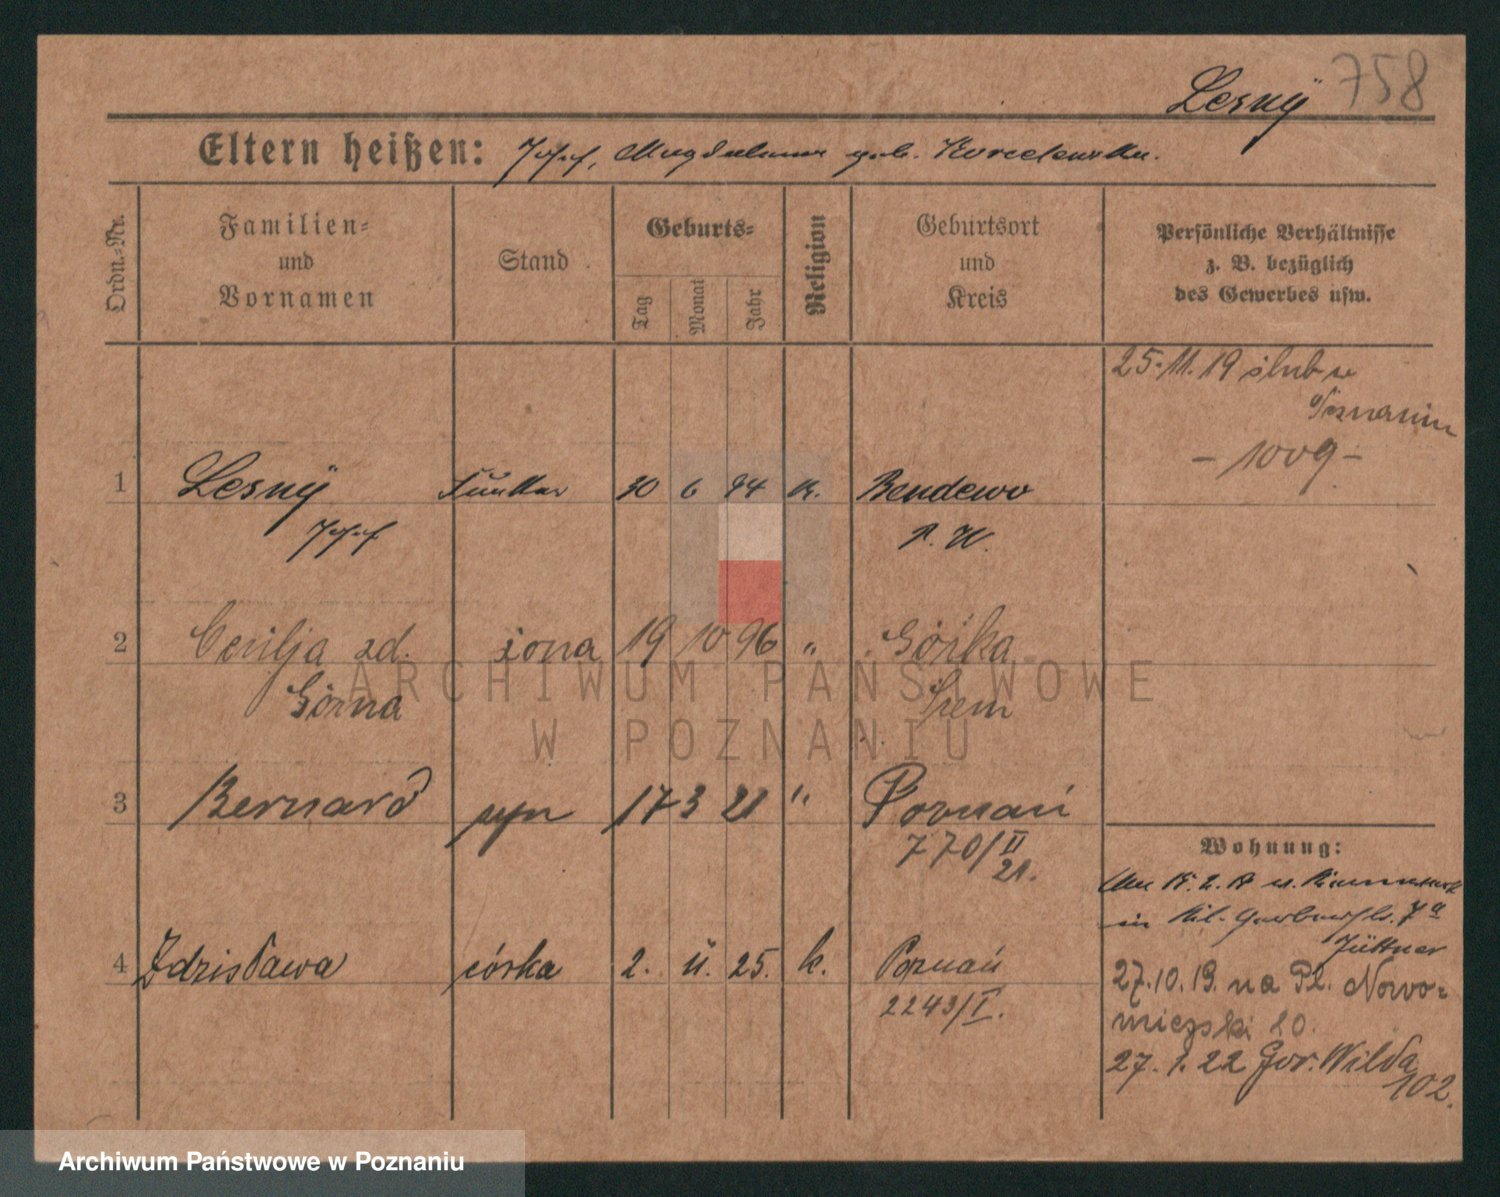 758
Lesnÿ
Eltern heißen: Josef, Magdalena geb.
Ordn.-Nr.
Familien-
und
Vornamen
Stand
Geburts-
Tag
Monat
Jahr
Religion
Geburtsort
und
Kreis
Persönliche Verhältnisse
z. B. bezüglich
des Gewerbes usw.
25.11.19 ślub w
Poznaniu
– 1009 –
1 Lesnÿ 30 6 94 k. Bendewo
Josef
2 Cecilja zd. żona 19 10 96 " Górka
Górna Śrem
3 Bernard syn 17 3 21 " Poznań
770/II
21.
4 Zdzisława córka 2. 11. 25. k. Poznań
2243/I.
Wohnung:
in
Jüttner
27.10.19. na Pl. Nowo-
miejski 10.
27. 1. 22 Gór. Wilda
102.
ARCHIWUM PAŃSTWOWE
W POZNANIU
Archiwum Państwowe w Poznaniu